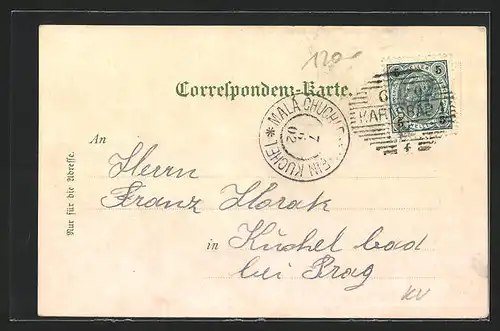 120.-
Correspondenz-Karte.
5 5
KARLSBAD
* MALÁ CHUCHLE * KLEIN KUCHEL
7
02
An
Herrn
Franz Horak
in Kuchel bad
bei Prag
Nur für die Adresse.
KV